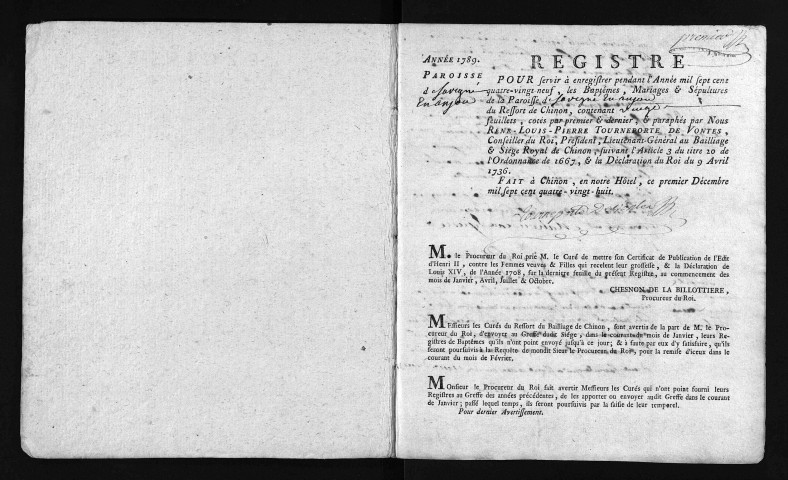 premier
ANNÉE 1789.
PAROISSE
d Savigné
En anjou
REGISTRE
POUR servir à enregistrer pendant l'Année mil sept cent
quatre-vingt-neuf, les Baptêmes, Mariages & Sépultures
de la Paroisse d Savigné En anjou
du Ressort de Chinon, contenant Vingt
feuillets, cotés par premier & dernier, & paraphés par Nous
RENÉ-LOUIS-PIERRE TOURNEPORTE DE VONTES,
Conseiller du Roi, Président, Lieutenant-Général au Bailliage
& Siége Royal de Chinon, suivant l'Article 3 du titre 20 de
l'Ordonnance de 1667, & la Déclaration du Roi du 9 Avril
1736.
FAIT à Chinon, en notre Hôtel, ce premier Décembre
mil sept cent quatre-vingt-huit.
M. le Procureur du Roi prie M. le Curé de mettre son Certificat de Publication de l'Edit
d'Henri II, contre les Femmes veuves & Filles qui recelent leur grossesse, & la Déclaration de
Louis XIV, de l'Année 1708, sur la derniere feuille du présent Registre, au commencement des
mois de Janvier, Avril, Juillet & Octobre.
CHESNON DE LA BILLOTTIERE,
Procureur du Roi.
MEssieurs les Curés du Ressort du Bailliage de Chinon, sont avertis de la part de M. le Pro-
cureur du Roi, d'envoyer au Greffe dudit Siége, dans le courant du mois de Janvier, leurs Re-
gistres de Baptêmes qu'ils n'ont point envoyé jusqu'à ce jour; & à faute par eux d'y satisfaire, qu'ils
seront poursuivis à la Requête de mondit Sieur le Procureur du Roi, pour la remise d'iceux dans le
courant du mois de Février.
MOnsieur le Procureur du Roi fait avertir Messieurs les Curés qui n'ont point fourni leurs
Registres au Greffe des années précédentes, de les apporter ou envoyer audit Greffe dans le courant
de Janvier; passé lequel temps, ils seront poursuivis par la saisie de leur temporel.
Pour dernier Avertissement.